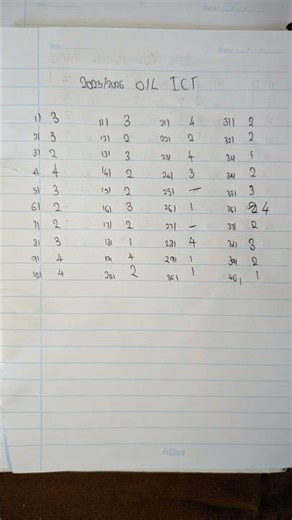 2025/2026 O/L ICT
1) 3 11) 3 21) 4 31) 2
2) 3 12) 2 22) 2 32) 2
3) 2 13) 3 23) 4 33) 1
4) 4 14) 2 24) 3 34) 2
5) 3 15) 2 25) – 35) 3
6) 2 16) 3 26) 1 36) 4
7) 2 17) 2 27) – 37) 2
8) 3 18) 1 28) 4 38) 3
9) 4 19) 4 29) 1 39) 2
10) 4 20) 2 30) 1 40) 1
Atlas